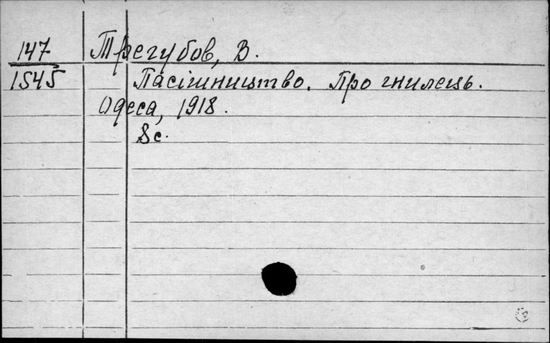 147
1545
Трегубов, В.
Пасішництво. Про гнилець.
Одеса, 1918.
8с.